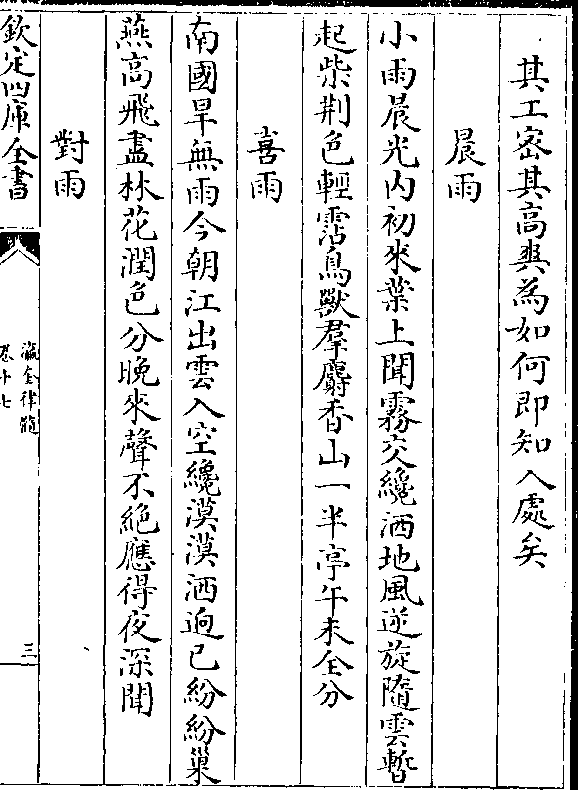 其工密其高爽為如何即知入處矣
晨雨
小雨晨光内初來葉上聞霧交纔洒地風逆旋隨雲暫
起柴荆色輕霑鳥獸羣麝香山一半亭午未全分
喜雨
南國旱無雨今朝江出雲入空纔漠漠洒迥已紛紛巢
燕高飛盡林花潤色分晚來聲不絶應得夜深聞
對雨
欽定四庫全書
瀛奎律髓
卷十七
三